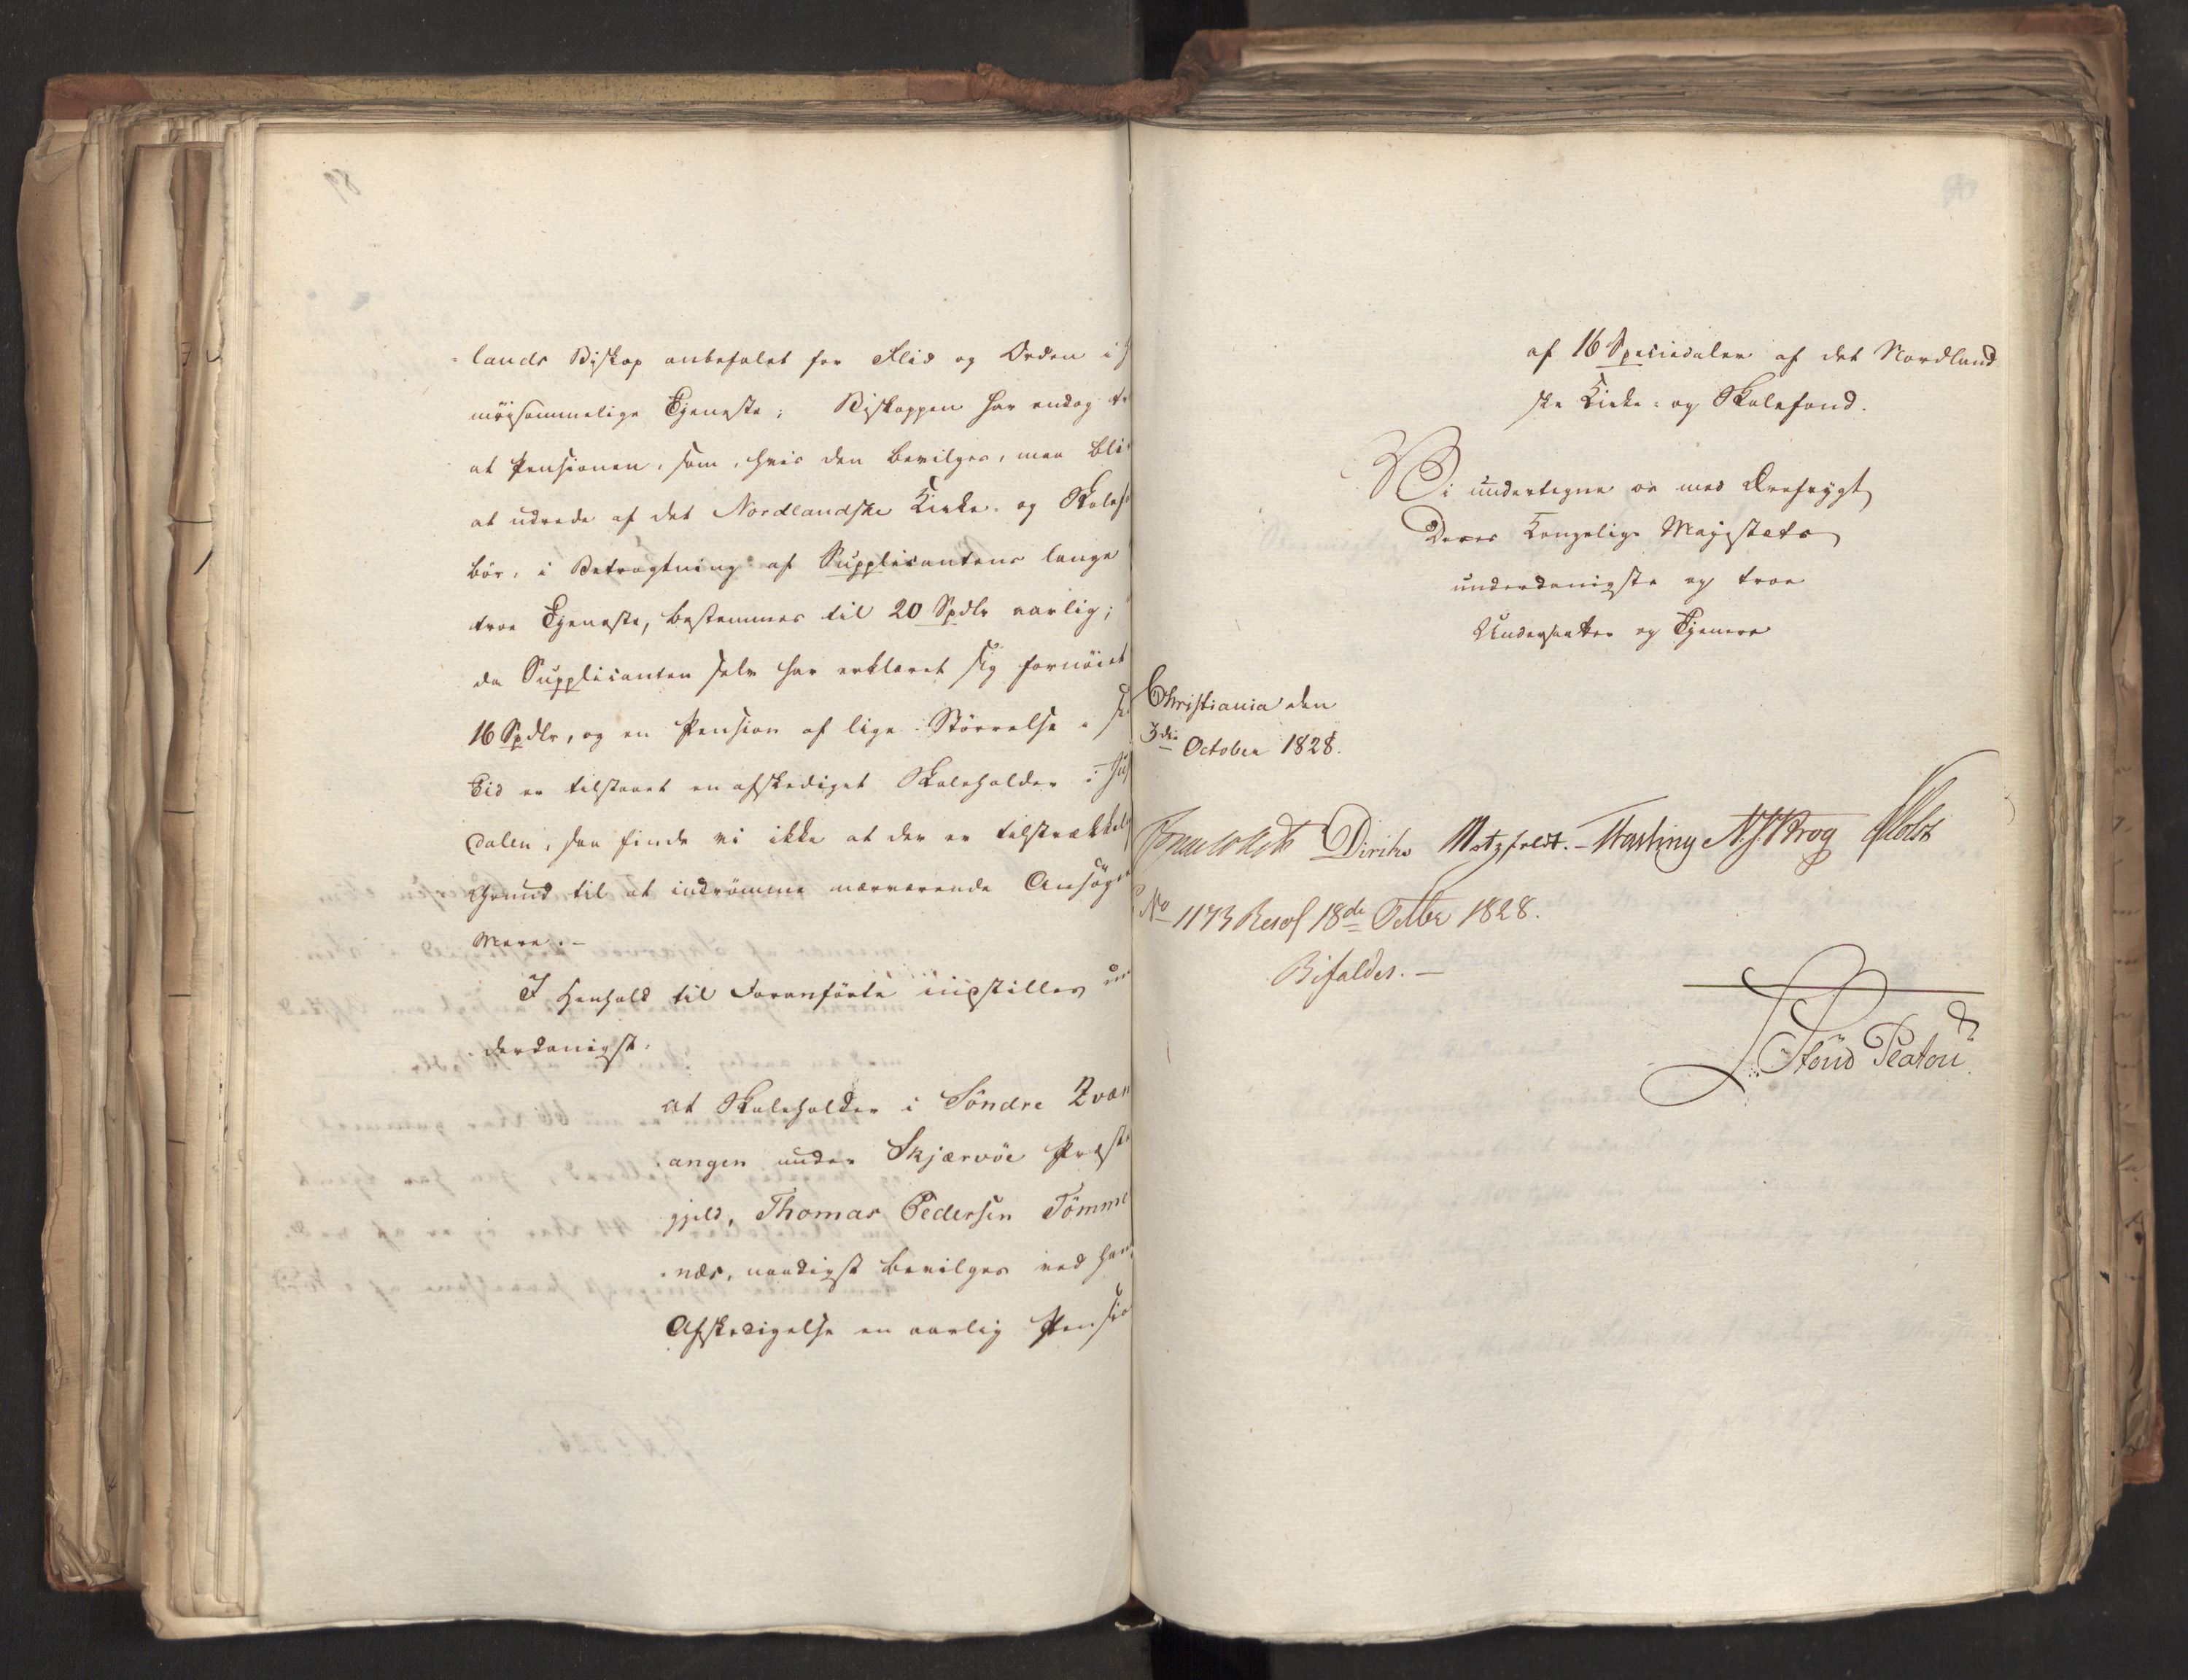 lands Biskop anbefalet for Flid og Orden i
møisommelige Tjeneste; Biskoppen har endog
at Pensionen, som, hvis den bevilges, maa bli
at udrede af det Nordlandske Kirke- og Skolef
bör, i Betragtning af Supplicantens lange
troe Tjeneste, bestemmes til 20 Spdlr aarlig;
da Supplicanten selv har erklæret sig fornöiet
16 Spdlr, og en Pension af lige Störrelse i
Tid er tilstaaet en afskediget Skoleholder i
dalen, saa finde vi ikke at der er tilstrækkelig
Grund til at indrömme nærværende Ansöger
Mere.-
I Henhold til Foranförte indstilles un
derdanigst:
at Skoleholder i Söndre Qvæn
angen under Skjærvöe Præste
gjeld, Thomas Pedersen Tömme
næs, naadigst bevilges ved hans
Afskedigelse en aarlig Pensio
af 16 Speciedaler af det Nordland
ske Kirke- og Skolefond.
Vi undertegne os med Ærefrygt
Deres Kongelige Majestæts
underdanigste og troe
Undersaatter og Tjenere
Christiania den
3die October 1828.
Diriks Motzfeldt.- N. J. Krog Holst
No 1173 Resol 18de Octbr 1828.
Bifaldes.-
Stoud Platou